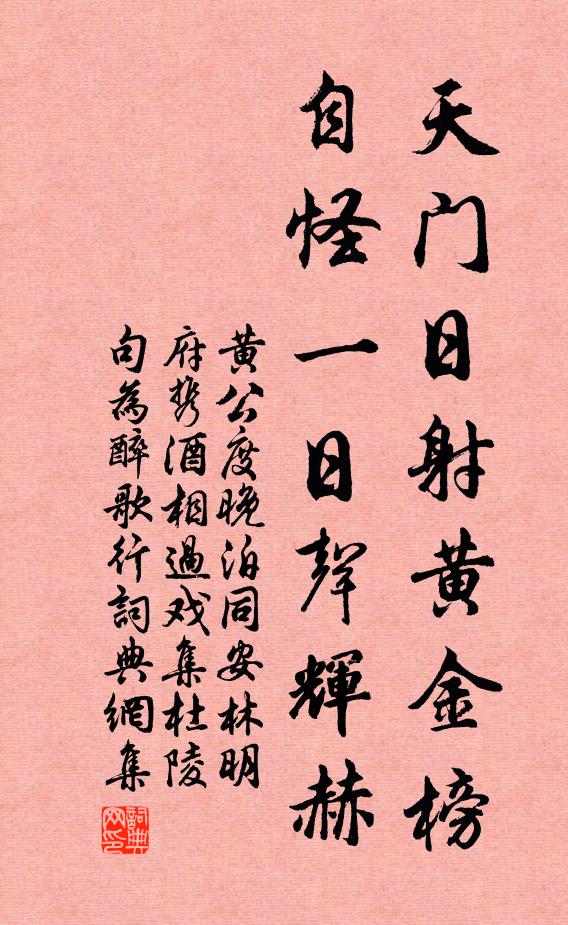 天门日射黄金榜
自怪一日声輝赫
黄公度晚泊同安林明
府携酒相過戏集杜陵
句為醉歌行詞典網集
詞典网印